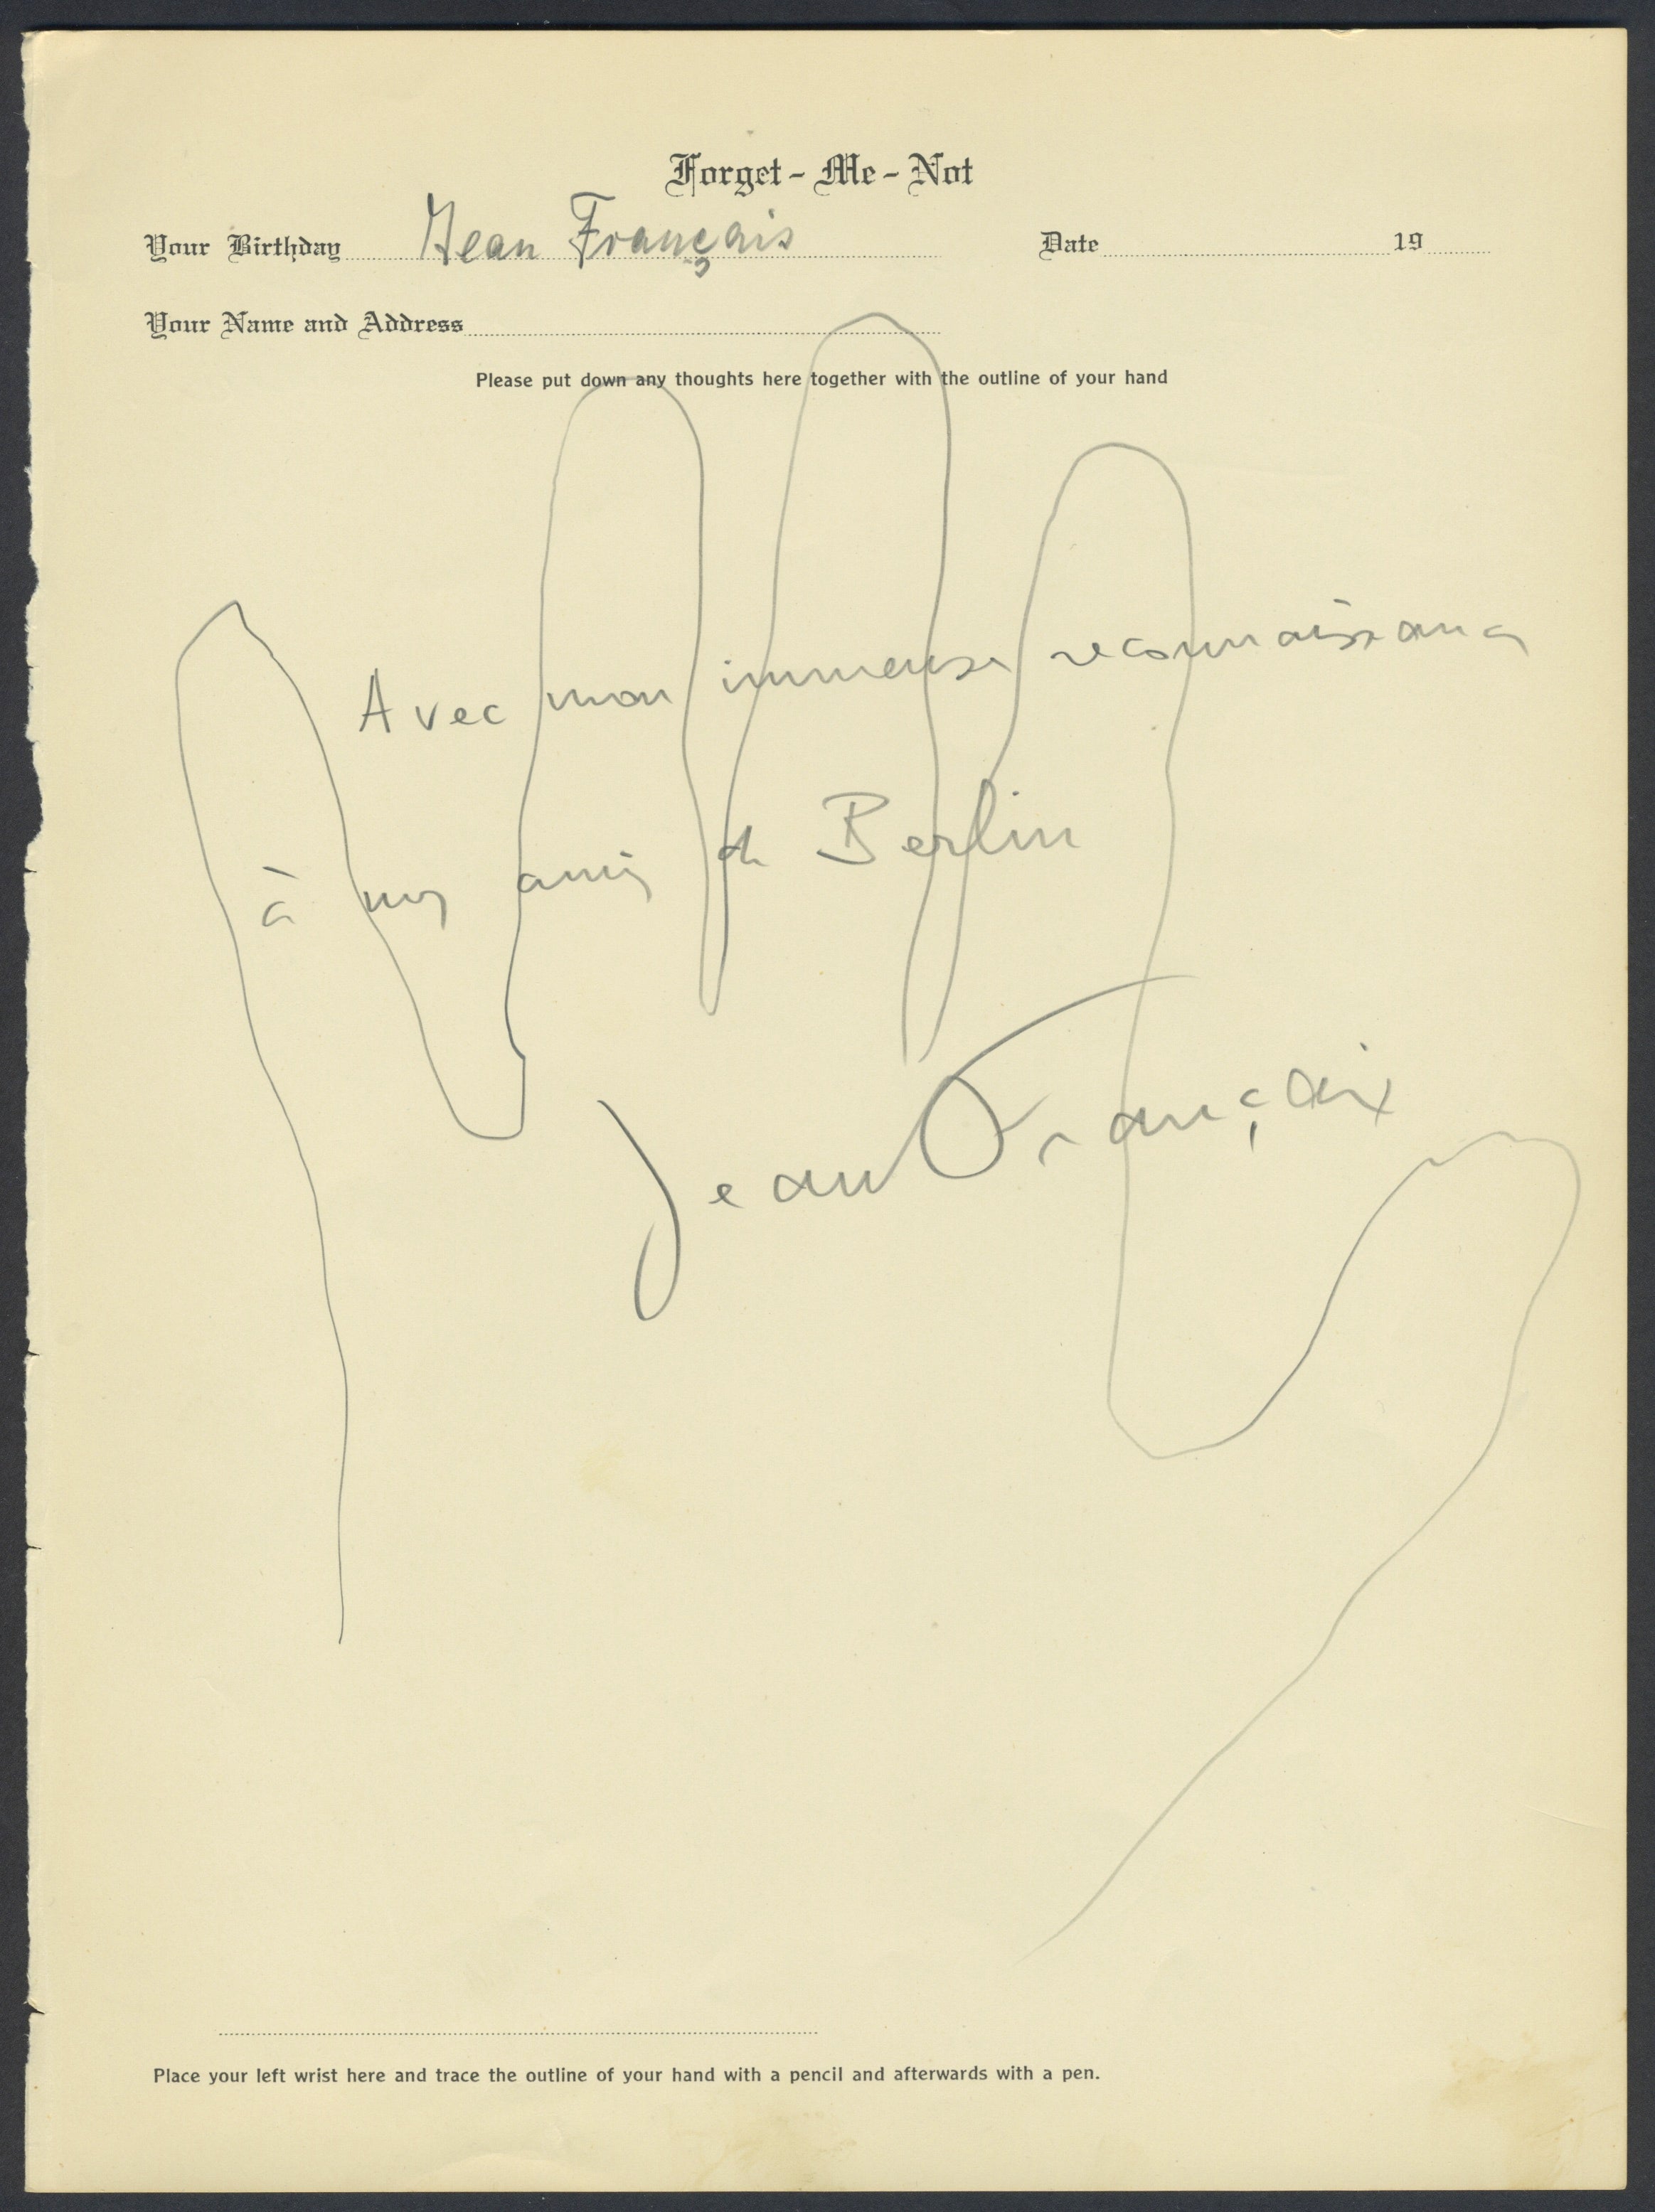 Forget-Me-Not
Your Birthday Jean Français Date 19
Your Name and Address
Please put down any thoughts here together with the outline of your hand
Avec mon immense reconnaissance
à mes amis de Berlin
Jean Françaix
Place your left wrist here and trace the outline of your hand with a pencil and afterwards with a pen.